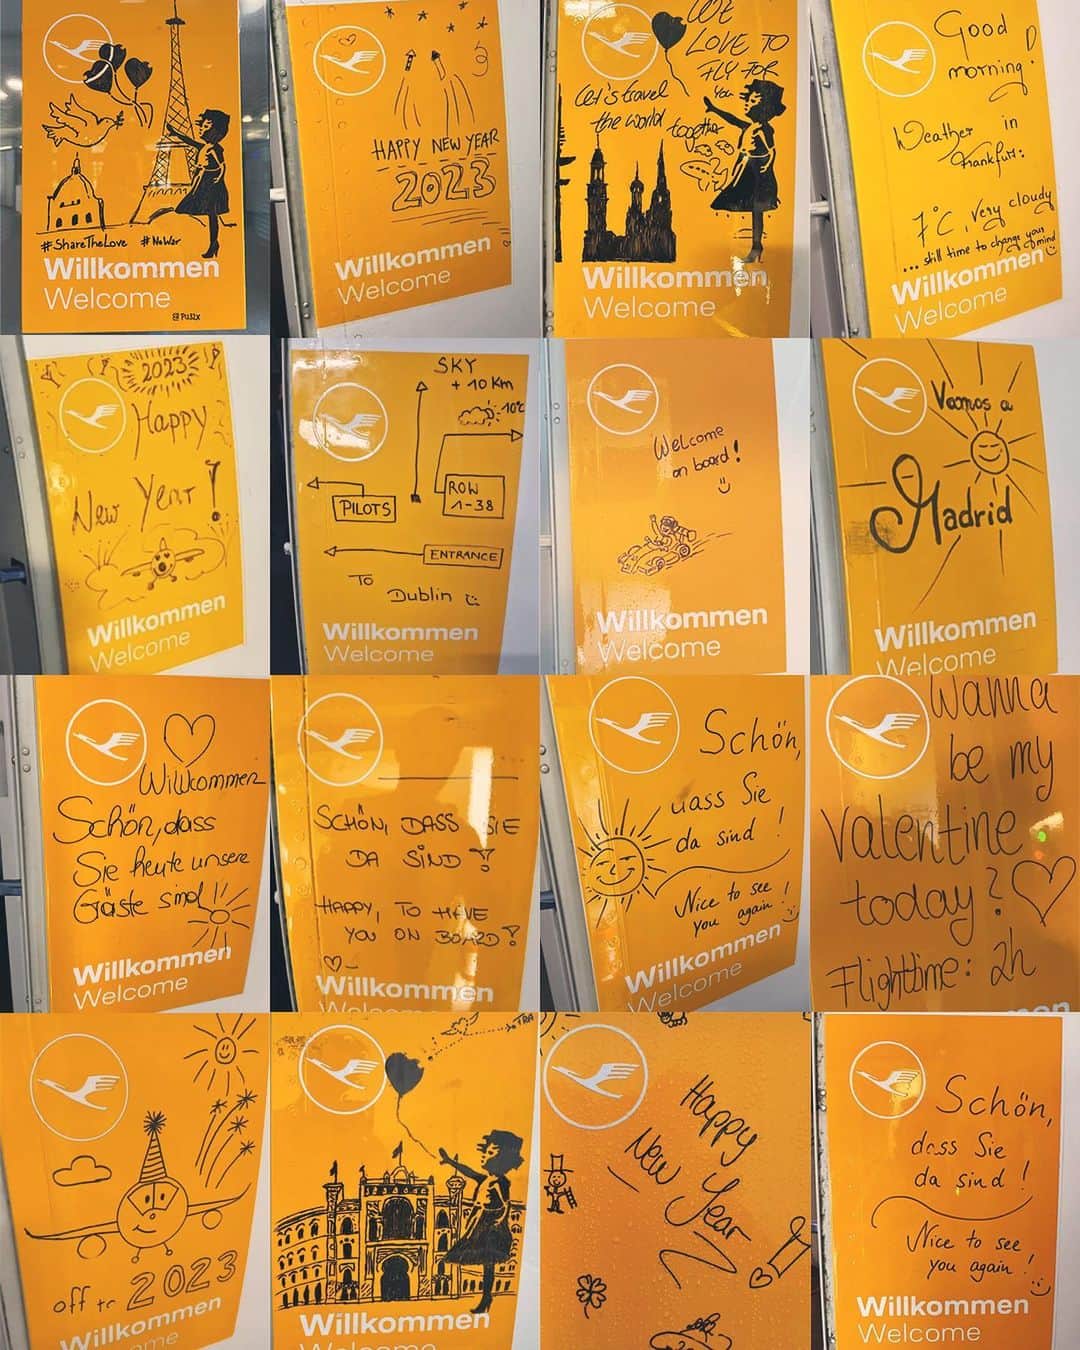 #ShareTheLove #NoWar
Willkommen
Welcome
@PUS2X
HAPPY NEW YEAR
2023
Willkommen
Welcome
WE
LOVE TO
FLY FOR
You
Let's travel
the world together
Willkommen
Welcome
Good
morning!
Weather in
Frankfurt:
7°C, very cloudy
... still time to change your mind
Willkommen
Welcome
2023
Happy
New Year!
Willkommen
Welcome
SKY
+ 10 Km
-10°C
PILOTS
ROW
1-38
ENTRANCE
To
Dublin
Willkommen
Welcome
Welcome
on board!
Willkommen
Welcome
Vamos a
Madrid
Willkommen
Welcome
Willkommen
Schön, dass
Sie heute unsere
Gäste sind!!
Willkommen
Welcome
SCHÖN, DASS SIE
DA SIND!
HAPPY, TO HAVE
YOU ON BOARD!
Willkommen
Welcome
Schön,
dass Sie
da sind!
Nice to see
you again!
Willkommen
Welcome
Wanna
be my
Valentine
today?
Flighttime: 2h
Willkommen
off to 2023
Willkommen
Welcome
TRA
Willkommen
Welcome
Happy
New Year
Willkommen
Welcome
Schön,
dass Sie
da sind!
Nice to see
you again!
Willkommen
Welcome